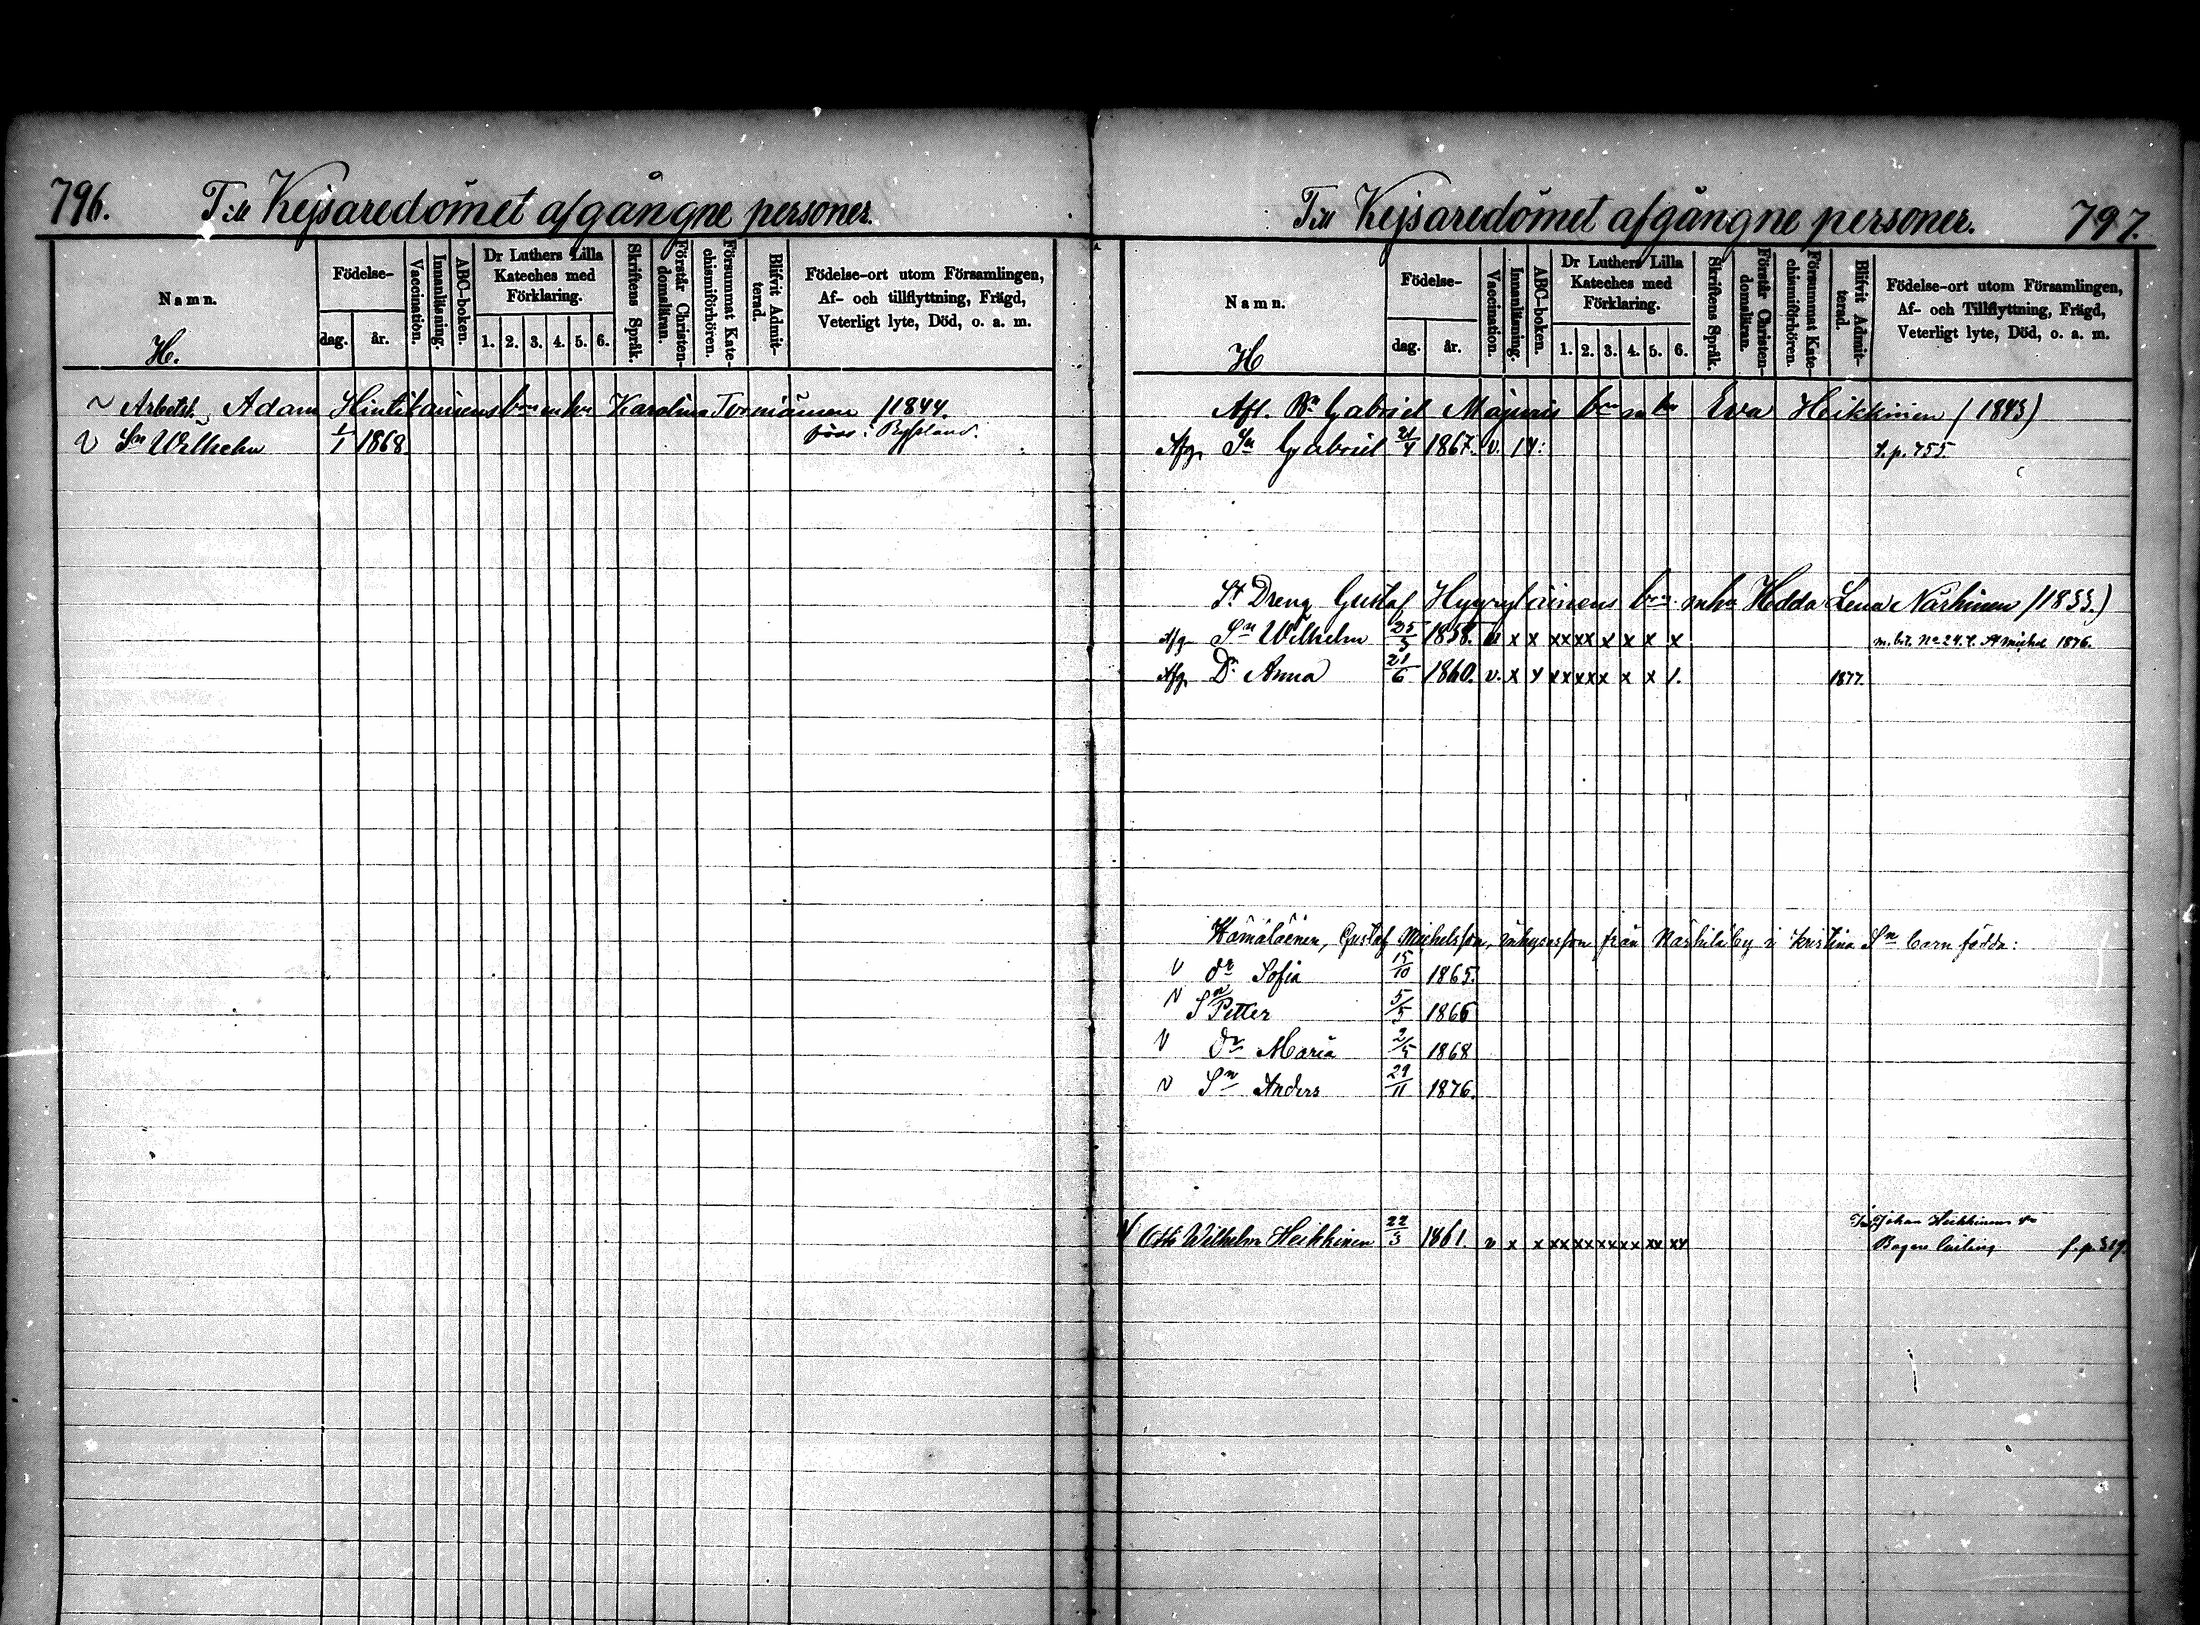 796. Till Kejsaredömet afgångne personer.
Namn.
H.
Födelse-
dag. år.
Vaccination.
Innanläsning.
ABC-boken.
Dr Luthers Lilla
Kateches med
Förklaring.
1. 2. 3. 4. 5. 6.
Skriftens Språk.
Förstår Christen-
domsläran.
Försummat Kate-
chismiförhören.
Blifvit Admit-
terad.
Födelse-ort utom Församlingen,
Af- och tillflyttning, Frägd,
Veterligt lyte, Död, o. a. m.
Adam Hintikainens Karolina 1844.
v Sn Wilhelm 1/1 1868. i Ryssland.
Till Kejsaredömet afgångne personer. 797.
Namn.
H
Födelse-
dag. år.
Vaccination.
Innanläsning.
ABC-boken.
Dr Luthers Lilla
Kateches med
Förklaring.
1. 2. 3. 4. 5. 6.
Skriftens Språk.
Förstår Christen-
domsläran.
Försummat Kate-
chismiförhören.
Blifvit Admit-
terad.
Födelse-ort utom Församlingen,
Af- och Tillflyttning, Frägd,
Veterligt lyte, Död, o. a. m.
Gabriel Eva Heikkinen (1843)
Afg. Sn Gabriel 21/4 1867. v. p. 755
Dreng Gustaf Hyyryläinens Hedda Lena Närhinen (1833.)
Afg Sn Wilhelm 25/3 1858. v x x xx xx x x x x 1876.
Afg. Dr Anna 21/6 1860. v. x x xx xx x x x 1. 1877.
Hämäläinen, Gustaf Michelsson, från i Kristina Sn barn födda:
v dr Sofia 15/10 1865.
v Sn Petter 5/5 1866
v dr Maria 2/5 1868
v Sn Anders 29/11 1876.
Johan Heikkinens
v Otto Wilhelm Heikkinen 22/3 1861. v x x xx xx xx xx xx xx